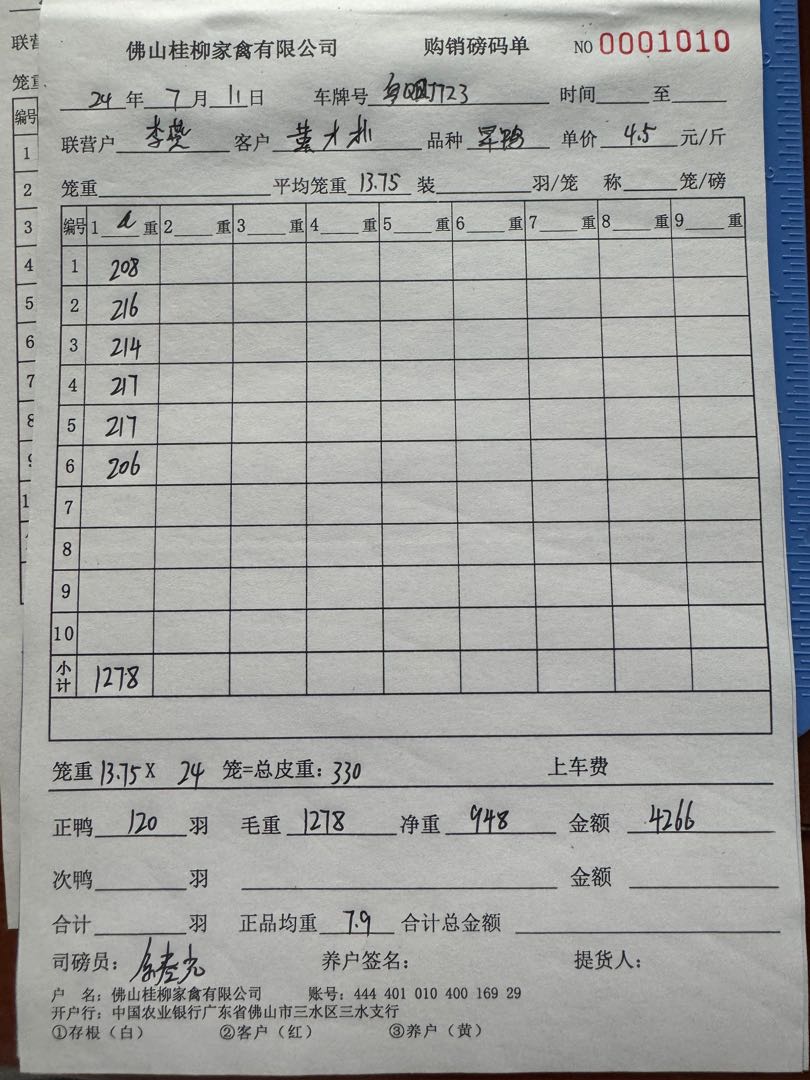 佛山桂柳家禽有限公司 购销磅码单 NO 0001010
24年7月11日 车牌号 J7723 时间 至
联营户 李 客户 黄才 品种 旱鸭 单价 4.5 元/斤
笼重 平均笼重 13.75 装 羽/笼 称 笼/磅
编号 1 重 2 重 3 重 4 重 5 重 6 重 7 重 8 重 9 重
1 208
2 216
3 214
4 217
5 217
6 206
7
8
9
10
小计 1278
笼重 13.75 X 24 笼=总皮重: 330 上车费
正鸭 120 羽 毛重 1278 净重 948 金额 4266
次鸭 羽 金额
合计 羽 正品均重 7.9 合计总金额
司磅员: 养户签名: 提货人:
户 名: 佛山桂柳家禽有限公司 账号: 444 401 010 400 169 29
开户行: 中国农业银行广东省佛山市三水区三水支行
①存根（白） ②客户（红） ③养户（黄）
联营
笼重
编号
1
2
3
4
5
6
7
8